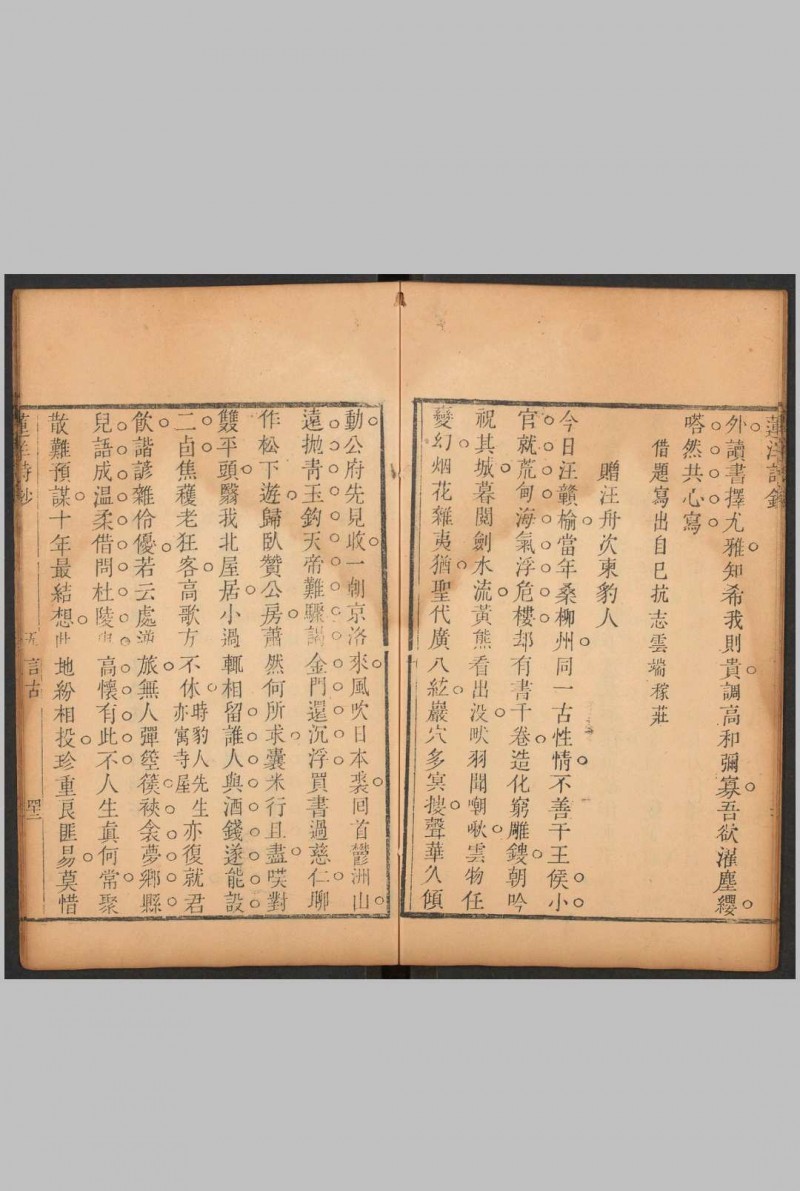 蓮洋詩鈔
外讀書擇尤雅知希我則貴調高和彌寡吾欲濯塵纓
嗒然共心寫
借題寫出自巳抗志雲端稼莊
贈汪舟次柬豹人
今日汪贛榆當年桑柳州同一古性情不善干王侯小
官就荒甸海氣浮危樓却有書千卷造化窮雕鎪朝吟
祝其城暮閱劍水流黃熊看出没畎羽聞嘲啾雲物任
變幻烟花雜夷猶聖代廣八紘巖穴多冥搜聲華久傾
動公府先見收一朝京洛來風吹日本裘回首鬱洲山
遠抛青玉鈎天帝難驟謁金門還沉浮買書過慈仁聊
作松下遊歸臥贊公房蕭然何所求囊米行且盡唉對
雙平頭翳我北屋居小過輒相留誰人與酒錢遂能設
二卣焦穫老狂客高歌方不休時豹人先生亦寓寺屋亦復就君
飲諧諺雜伶優若云處逆旅無人彈箜篌裌衾夢鄉縣
兒語成温柔借問杜陵叟高懷有此不人生眞何常聚
散難預謀十年最結想世地紛相投珍重良匪易莫惜
蓮洋詩鈔 五言古